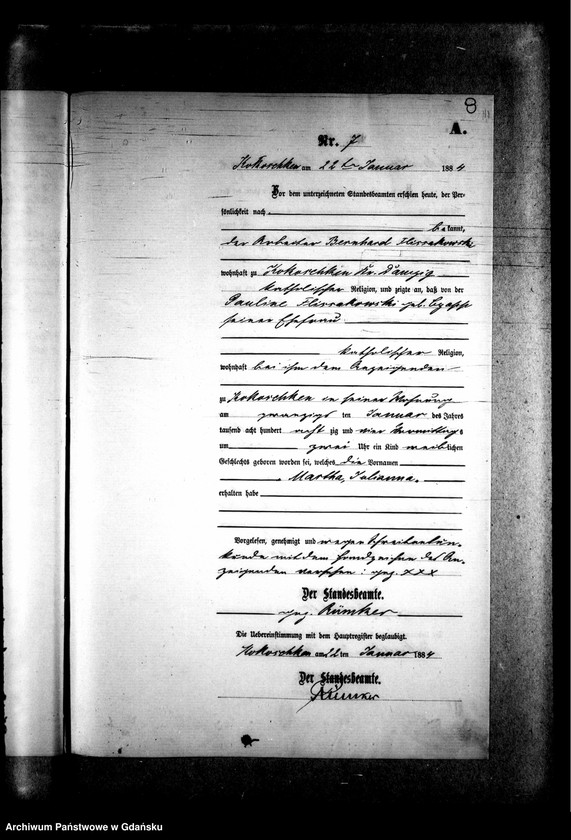 8
A.
Nr. 7
Kokoschken am 22 ten Januar 1884
Vor dem unterzeichneten Standesbeamten erschien heute, der Per-
sönlichkeit nach
bekannt,
der Arbeiter Bernhard Flissakowski
wohnhaft zu Kokoschken Kr. Danzig
katholischer Religion, und zeigte an, daß von der
Pauline Flissakowski geb.
seiner Ehefrau
katholischer Religion,
wohnhaft bei ihm dem Anzeigenden
zu Kokoschken in seiner Wohnung
am zwanzigsten Januar des Jahres
tausend acht hundert achtzig und vier Vormittags
um zwei Uhr ein Kind weiblichen
Geschlechts geboren worden sei, welches die Vornamen
Martha, Julianna.
erhalten habe
Vorgelesen, genehmigt und wegen Schreibensun-
kunde mit dem Handzeichen des An-
zeigenden versehen: gez. XXX
Der Standesbeamte.
gez. Rümker
Die Uebereinstimmung mit dem Hauptregister beglaubigt.
Kokoschken am 22 ten Januar 1884
Der Standesbeamte.
Rümker
Archiwum Państwowe w Gdańsku